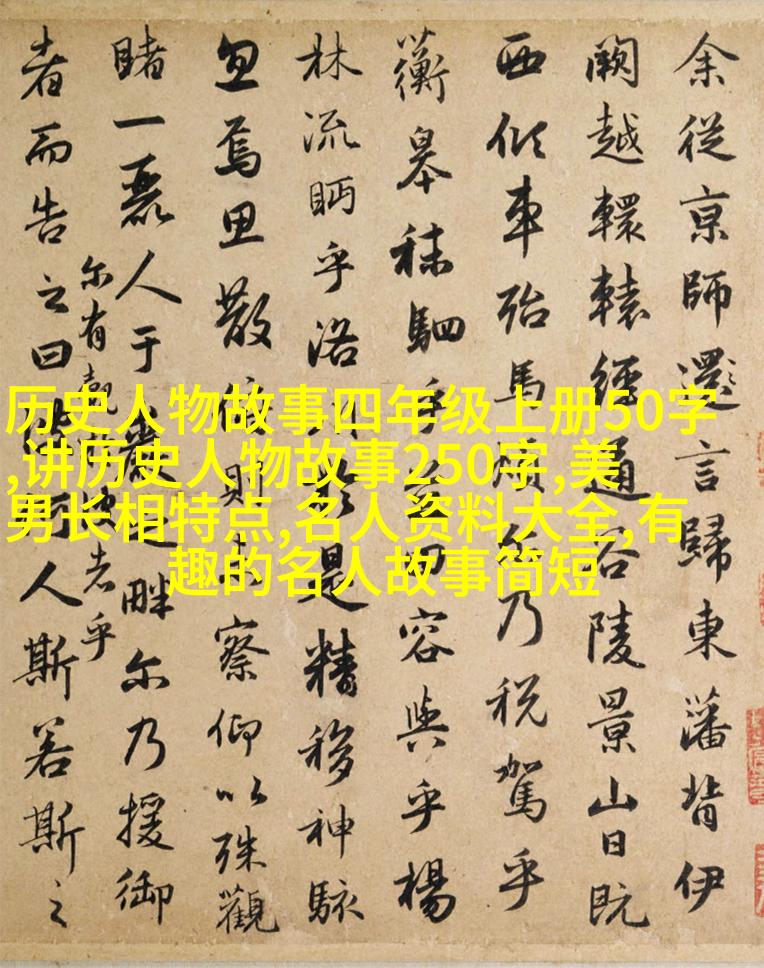 余從京師還言歸東藩背伊
闕越轘轅經通谷陵景山日既
西傾車殆馬煩尒乃税駕乎
蘅皋秣駟乎芝田容與乎楊
林流眄乎洛川於是精移神駭
忽焉思散俯則未察仰以殊觀
睹一麗人于巖之畔尒乃援御
尔有覿於彼者乎
者而告之曰彼何人斯若斯之
历史人物故事四年级上册50字
,讲历史人物故事250字,美
男长相特点,名人资料大全,有
趣的名人故事简短